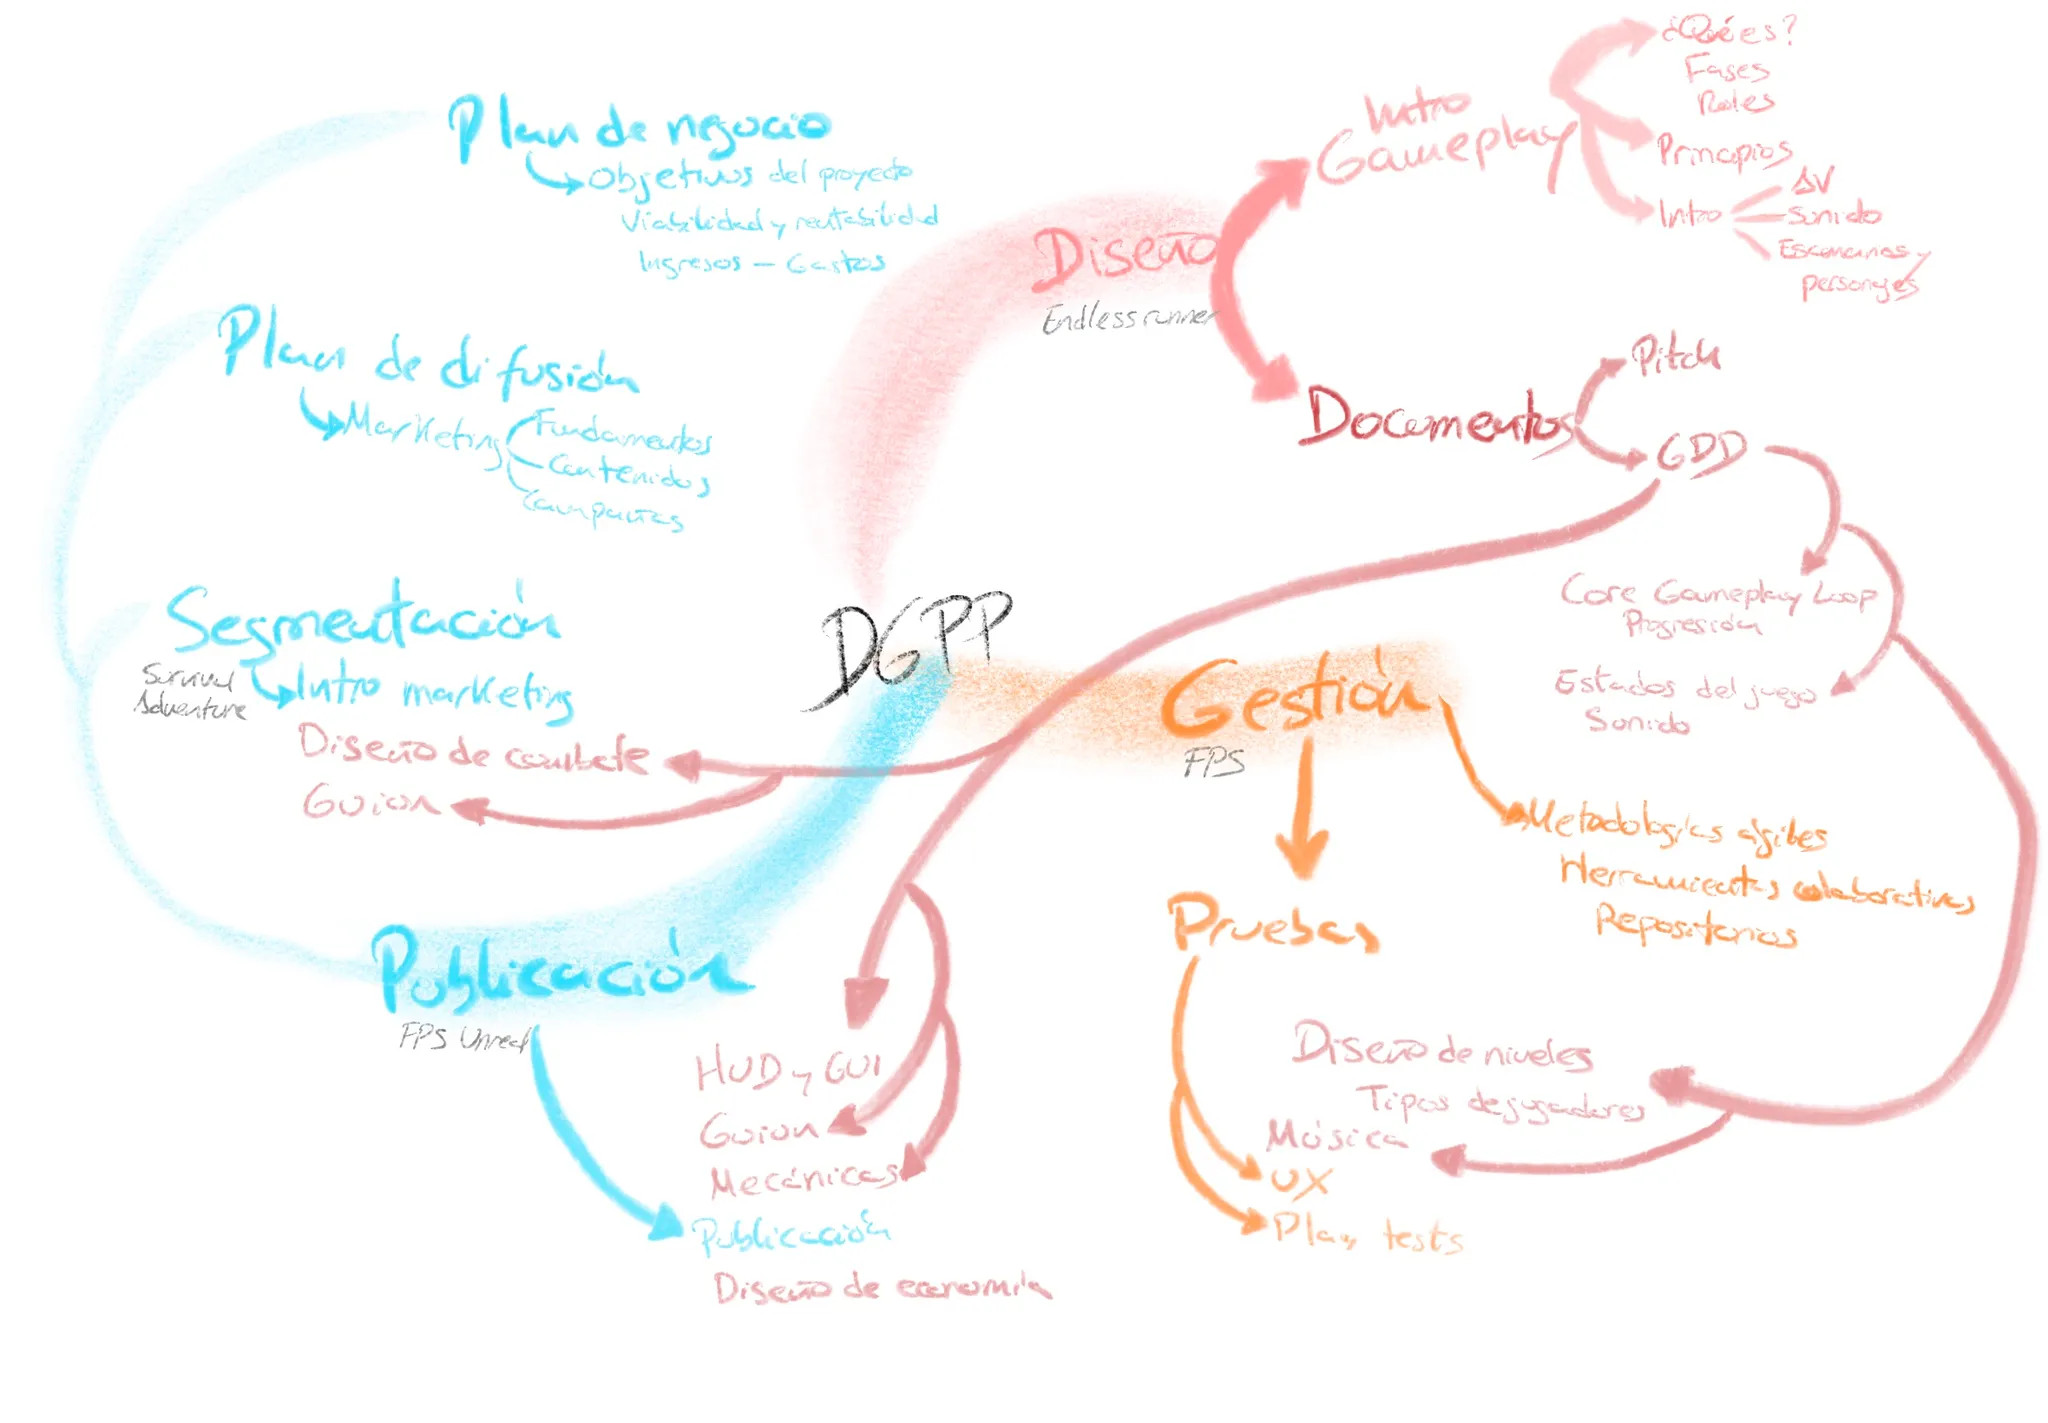 DGPP
Diseño
Endless runner
Intro
Gameplay
¿Qué es?
Fases
Roles
Principios
Intro
Sonido
Escenarios y
personajes
Documentos
Pitch
GDD
Core Gameplay Loop
Progresión
Estados del juego
Sonido
Diseño de niveles
Tipos de jugadores
Música
HUD y GUI
Guion
Mecánicas
Diseño de combate
Guion
Gestión
FPS
Metodologías ágiles
Herramientas colaborativas
Repositorios
Pruebas
UX
Play tests
Publicación
FPS Unreal
Publicación
Diseño de economía
Segmentación
Survival
Adventure
Intro marketing
Plan de difusión
Marketing
Fundamentos
Contenidos
Campañas
Plan de negocio
Objetivos del proyecto
Viabilidad y rentabilidad
Ingresos – Gastos